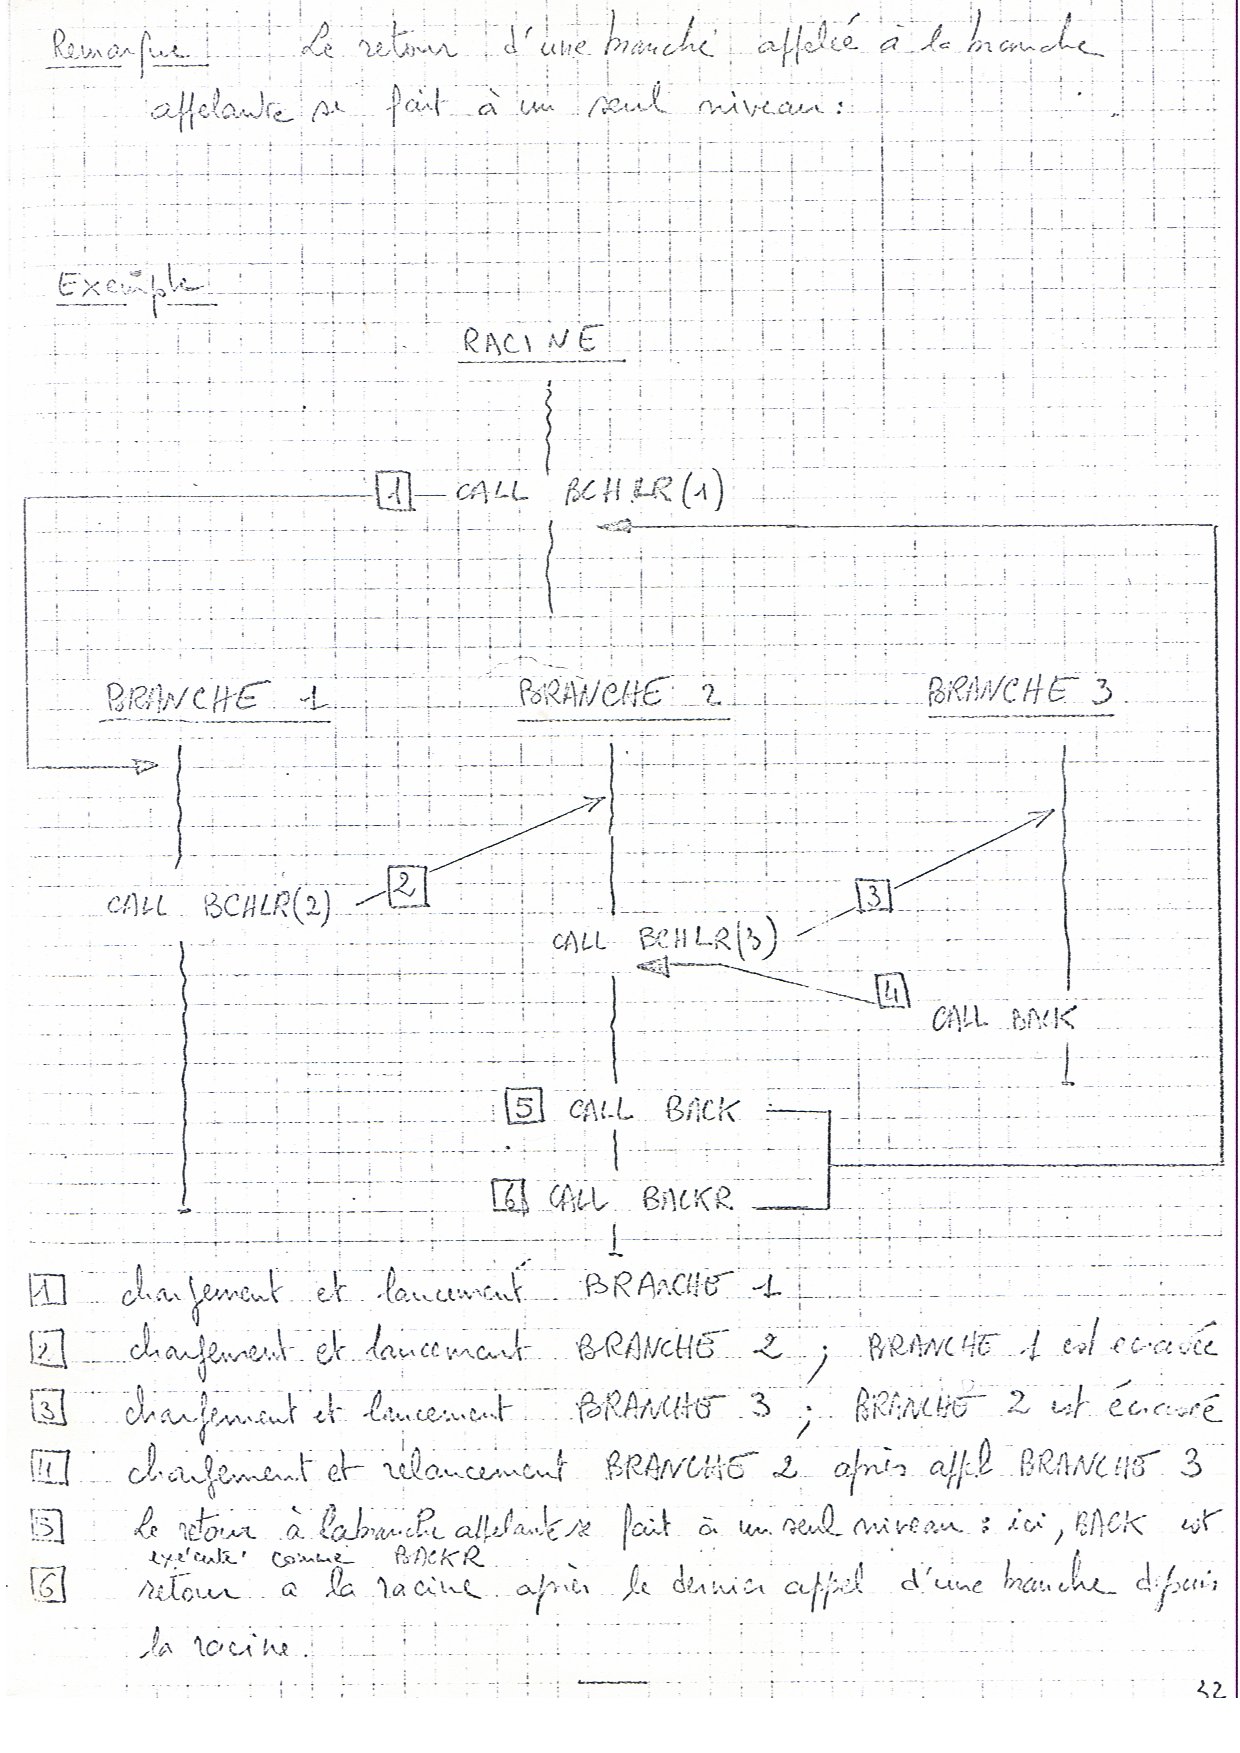 Remarque Le retour d'une branche appelée à la branche
appelante se fait à un seul niveau :
Exemple
RACINE
1 CALL BCHLR(1)
BRANCHE 1 BRANCHE 2 BRANCHE 3
CALL BCHLR(2) 2
3
CALL BCHLR(3)
4
CALL BACK
5 CALL BACK
6 CALL BACKR
1 chargement et lancement BRANCHE 1
2 chargement et lancement BRANCHE 2 ; BRANCHE 1 est écrasée
3 chargement et lancement BRANCHE 3 ; BRANCHE 2 est écrasé
4 chargement et relancement BRANCHE 2 après appl BRANCHE 3
5 Le retour à la branche appelante se fait à un seul niveau : ici, BACK est
exécuté comme BACKR
6 retour a la racine après le dernier appel d'une branche depuis
la racine.
32